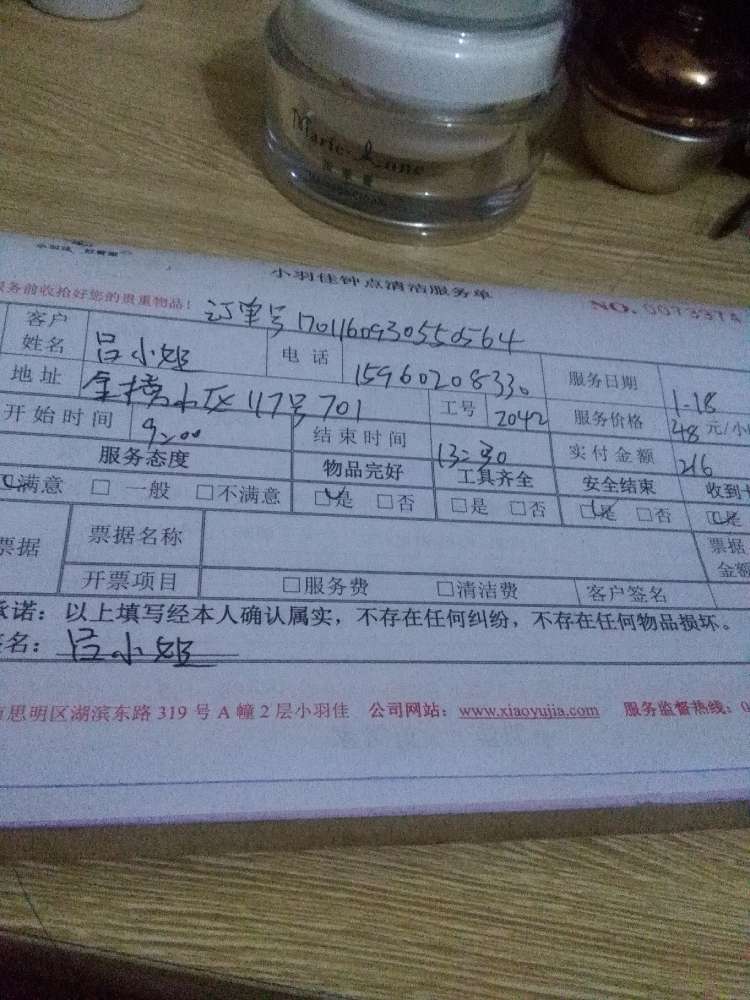 Marie-Anne
小羽佳钟点清洁服务单
服务前收拾好您的贵重物品！
NO. 0073374
订单号1701160930550564
客户姓名 吕小姐 电话 15960208330 服务日期 1-18
地址 金榜小区117号701 工号 2042 服务价格 48 元/小
开始时间 9:00 结束时间 13:30 实付金额 216
服务态度 物品完好 工具齐全 安全结束 收到
☑满意 □一般 □不满意 ☑是 □否 □是 □否 ☑是 □否 ☑是
票据 票据名称 票据金额
开票项目 □服务费 □清洁费 客户签名
承诺：以上填写经本人确认属实，不存在任何纠纷，不存在任何物品损坏。
签名：吕小姐
思明区湖滨东路 319 号 A 幢 2 层小羽佳 公司网站：www.xiaoyujia.com 服务监督热线：0